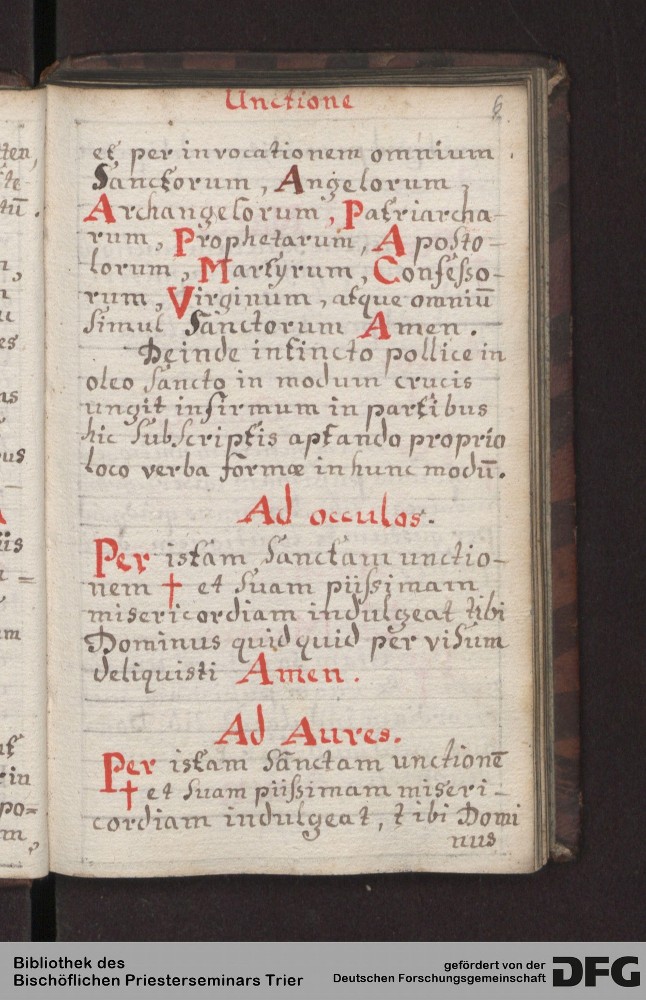 Unctione
6
et per invocationem omnium
Sanctorum, Angelorum,
Archangelorum, Patriarcha-
rum, Prophetarum, Aposto-
lorum, Martyrum, Confesso-
rum, Virginum, atque omniū
simul Sanctorum Amen.
Deinde intincto pollice in
oleo sancto in modum crucis
ungit infirmum in partibus
hic subscriptis aptando proprio
loco verba formæ in hunc modū.
Ad occulos.
Per istam Sanctam unctio-
nem † et suam piissimam
misericordiam indulgeat tibi
Dominus quidquid per visum
deliquisti Amen.
Ad Aures.
Per istam Sanctam unctionē
† et suam piissimam miseri-
cordiam indulgeat, tibi Domi
nus
Bibliothek des
Bischöflichen Priesterseminars Trier
gefördert von der
Deutschen Forschungsgemeinschaft
DFG